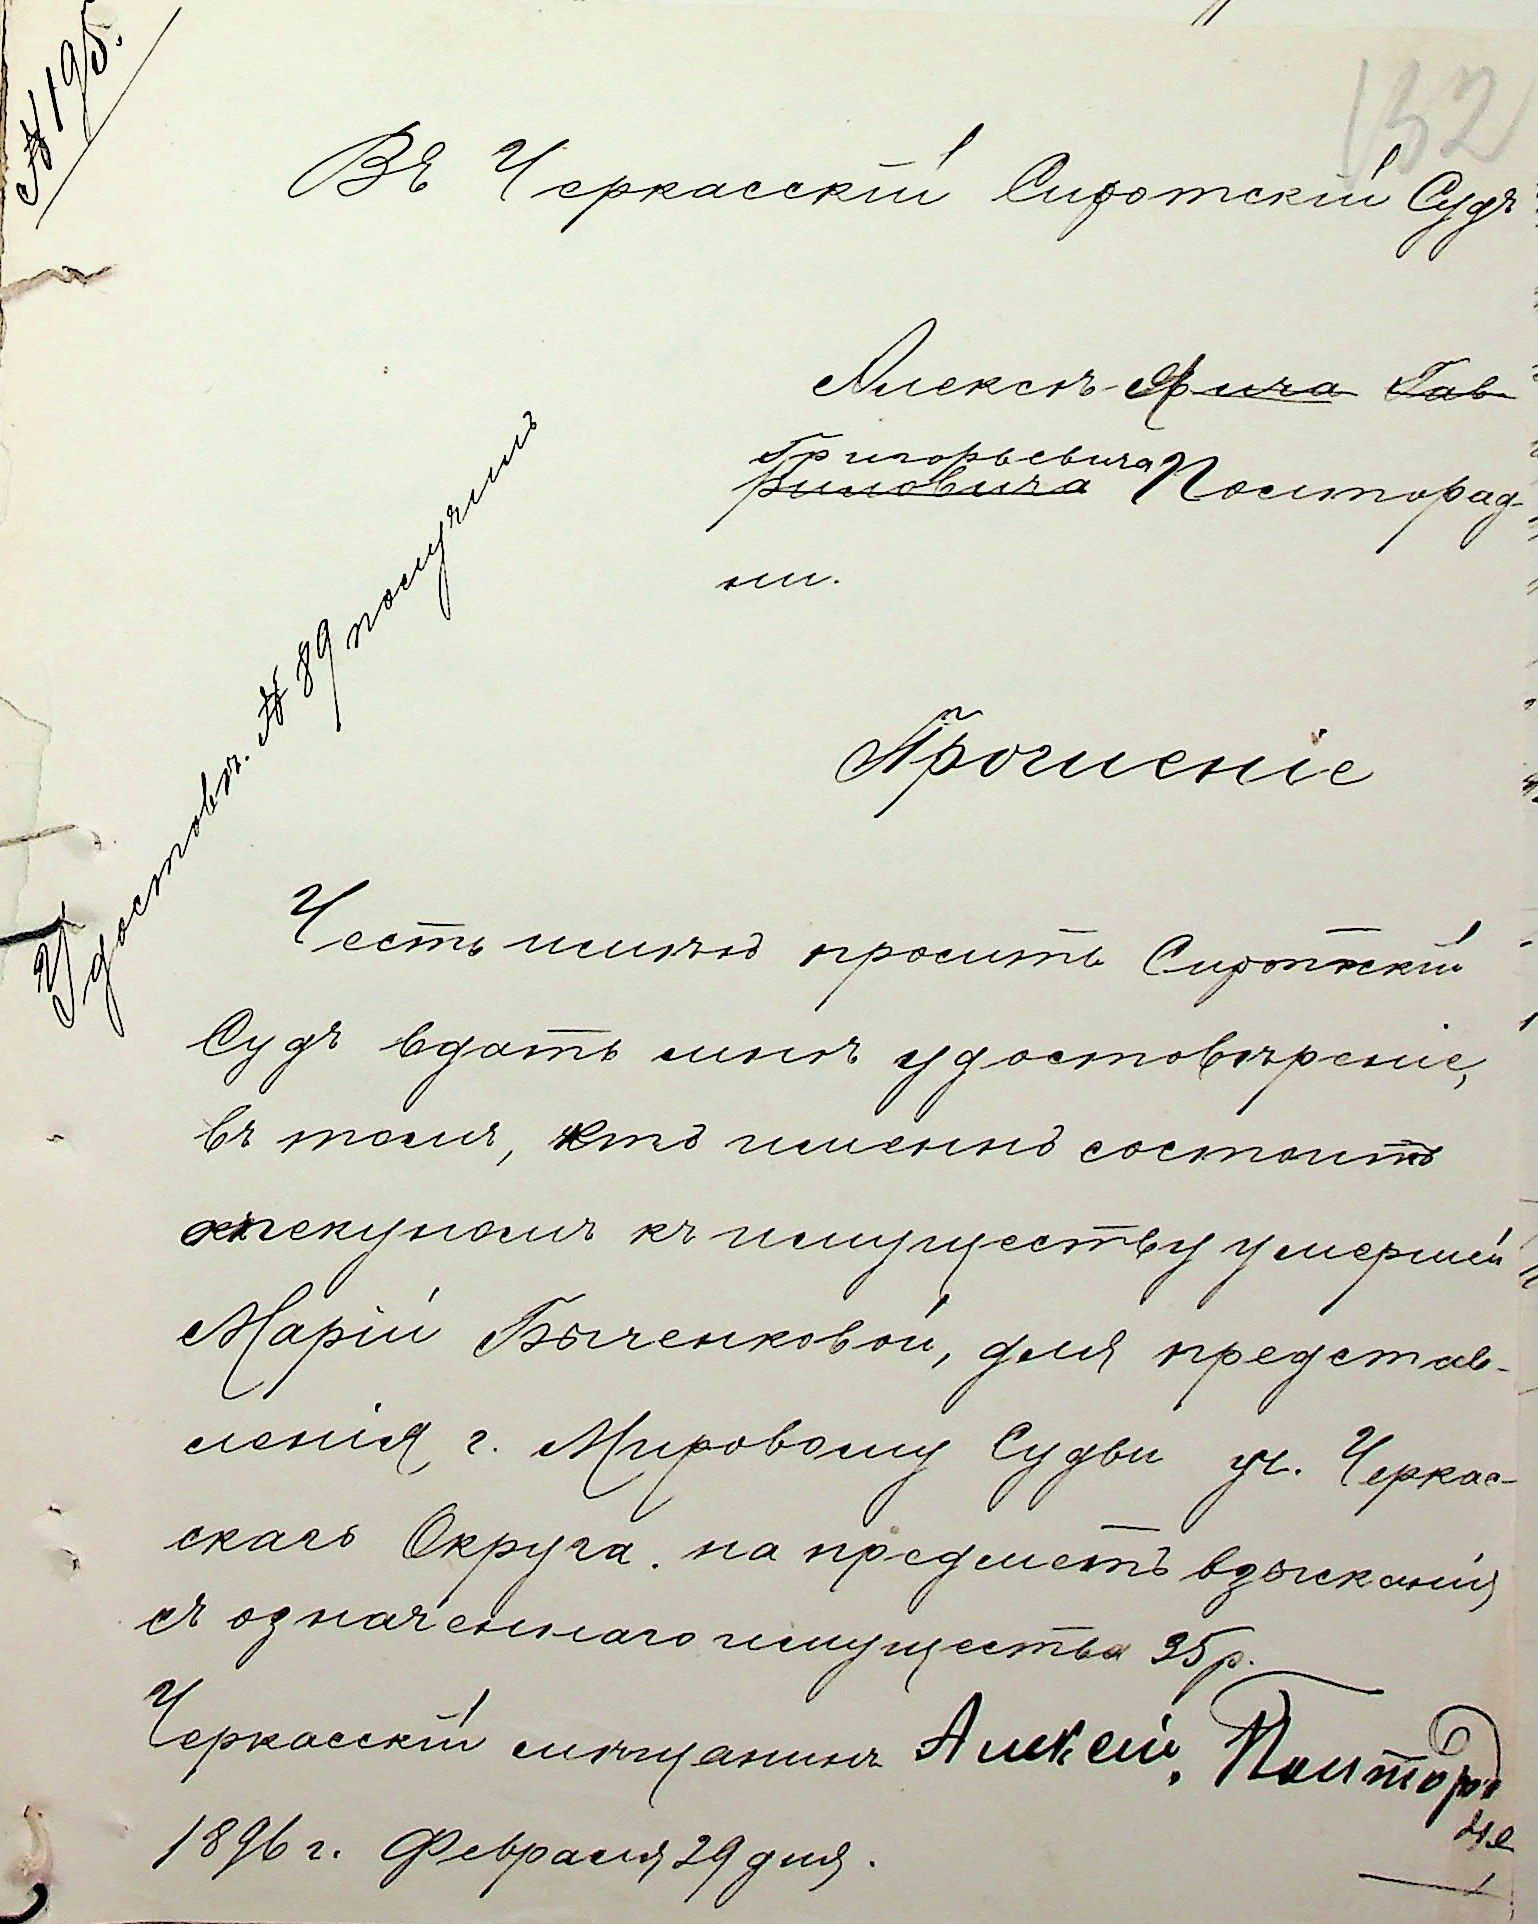 № 195.
132
Въ Черкасскій Сиротскій Судъ
Алексѣя Гав-
Григорьевича
риловича Полторад-
ни.
Прошеніе
Удостовѣ. № 89 получилъ
Честь имѣю просить Сиротскій
Судъ вдать мнѣ удостовѣреніе,
въ томъ, кто именно состоитъ
опекуномъ къ имуществу умершей
Маріи Быченковой, для представ-
ленія, г. Мировому Судьи уч. Черкас-
скаго Округа. на предметъ взысканія
съ означеннаго имущества 35 р.
Черкасскій мѣщанинъ Алексей, Полторад
не
1896 г. Февраля 29 дня.